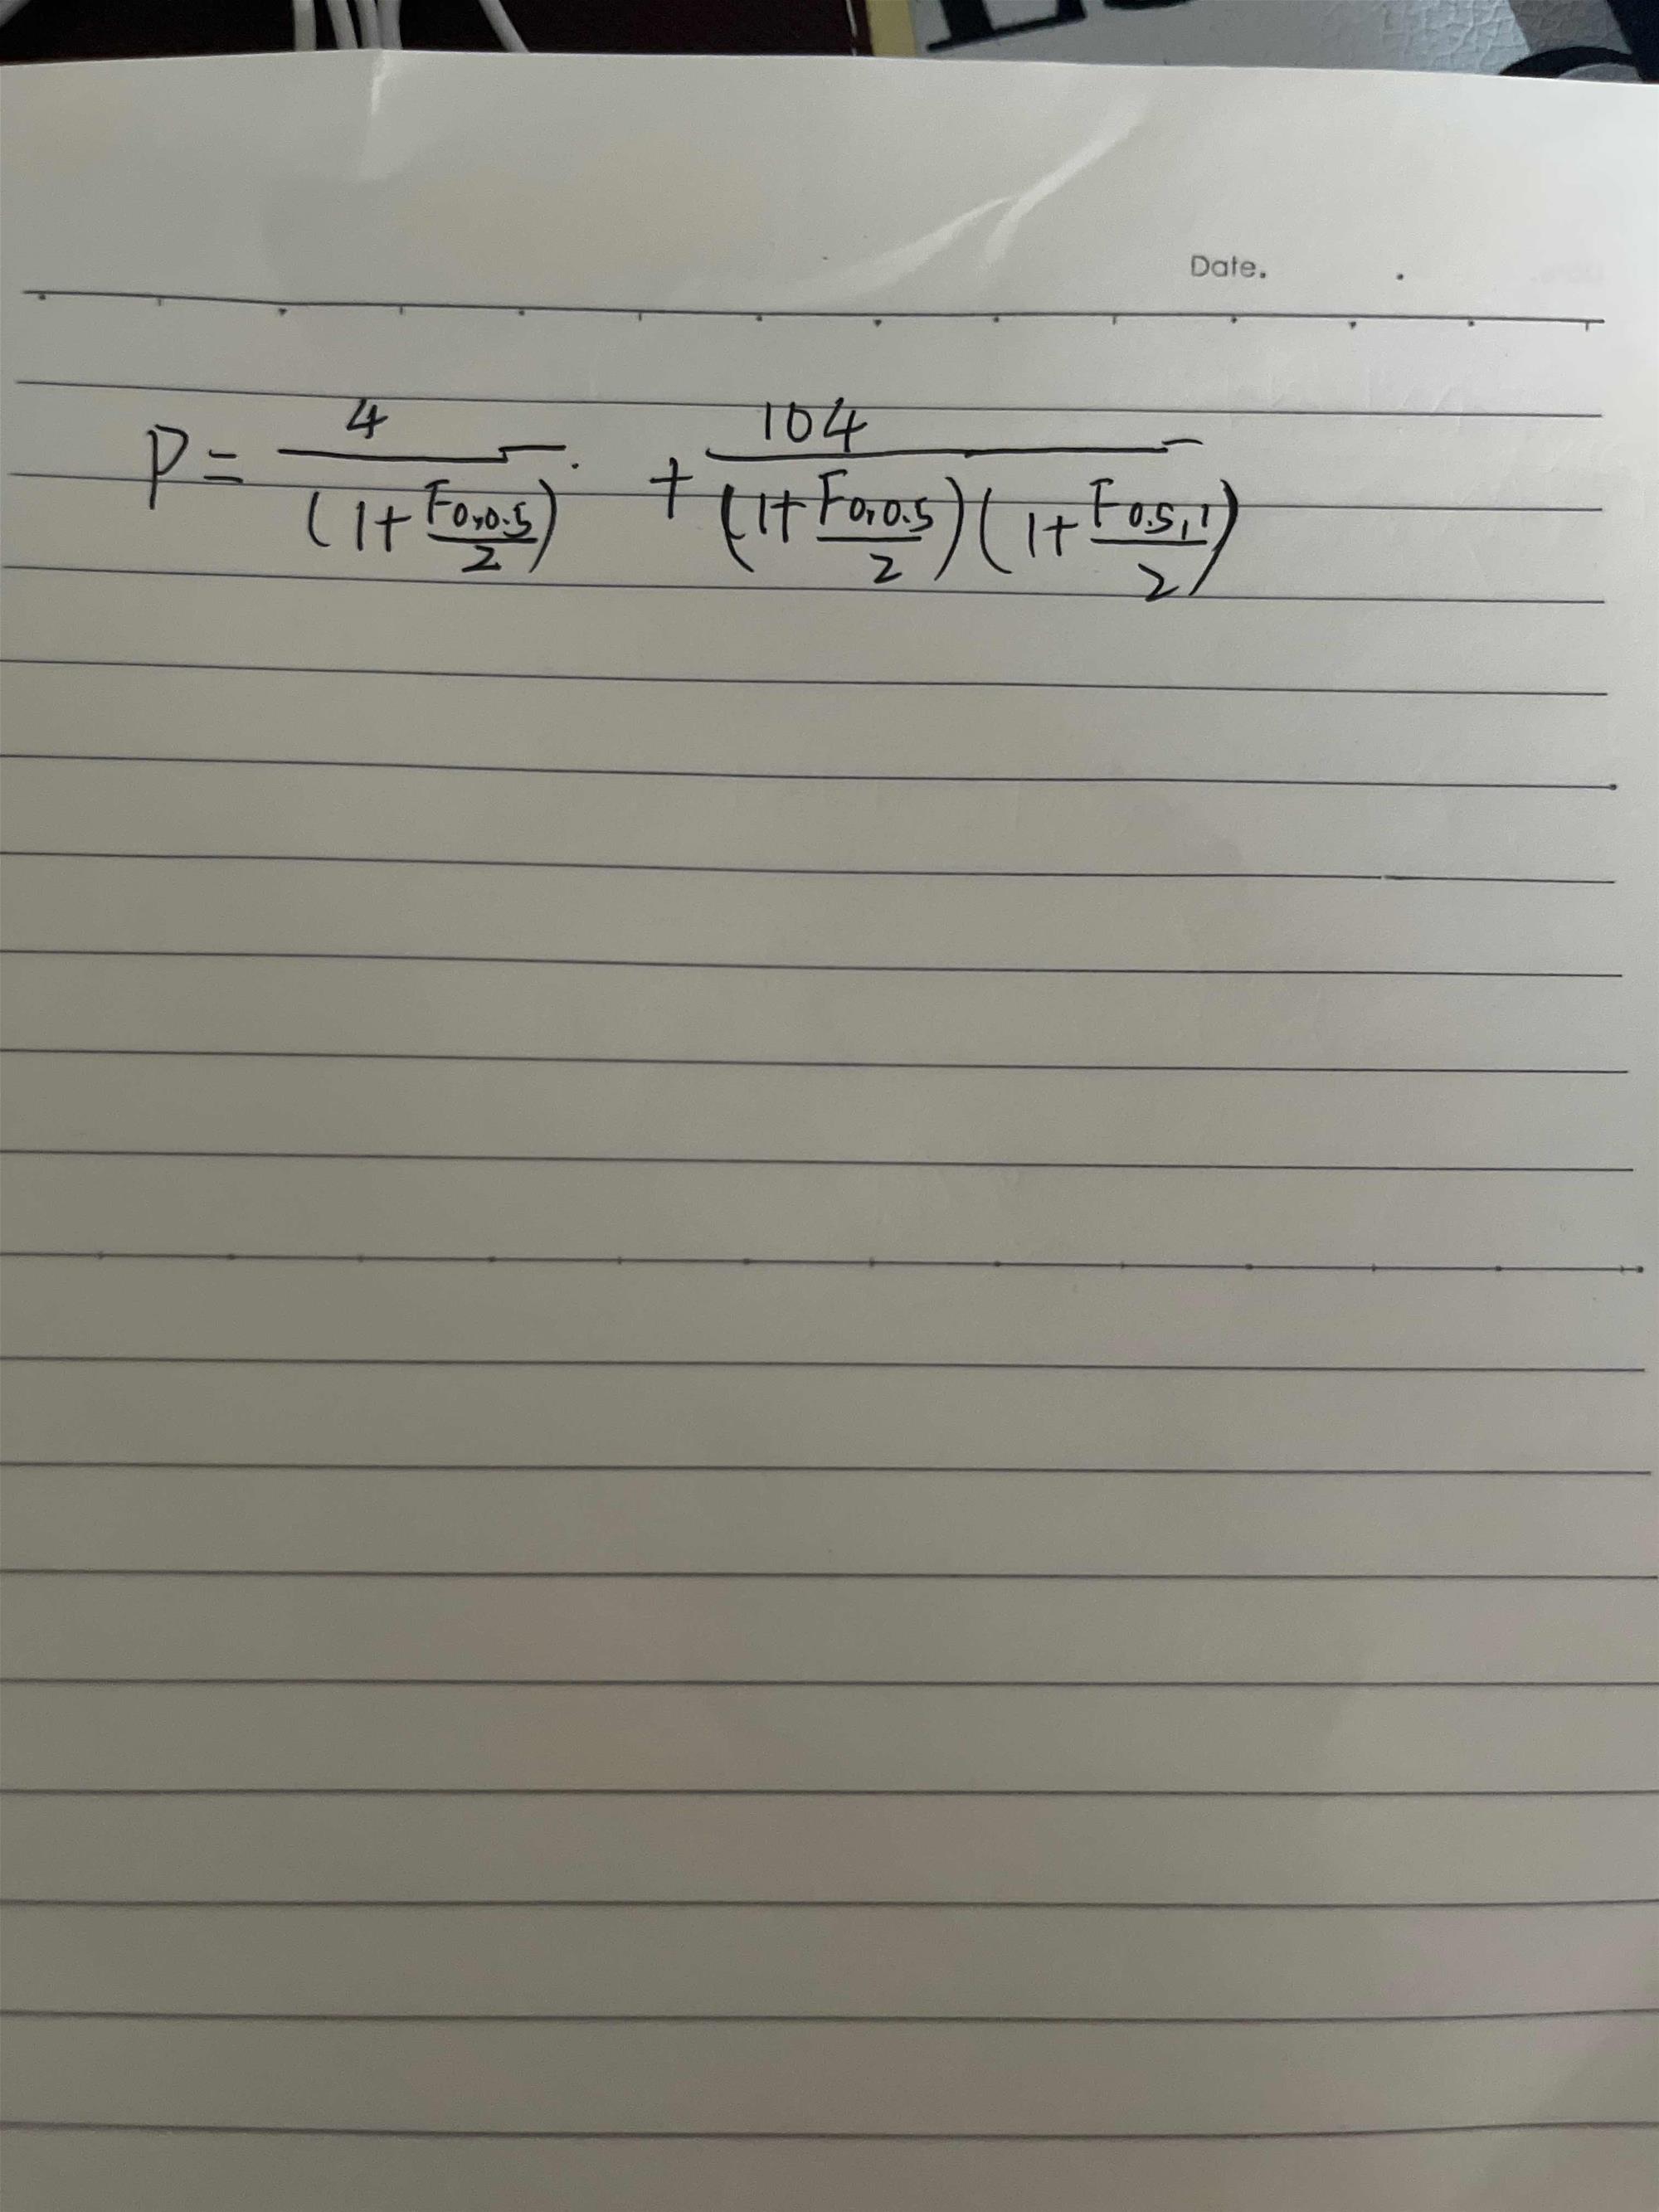 Date.
P = \frac{4}{(1+\frac{F_{0,0.5}}{2})} + \frac{104}{(1+\frac{F_{0,0.5}}{2})(1+\frac{F_{0.5,1}}{2})}